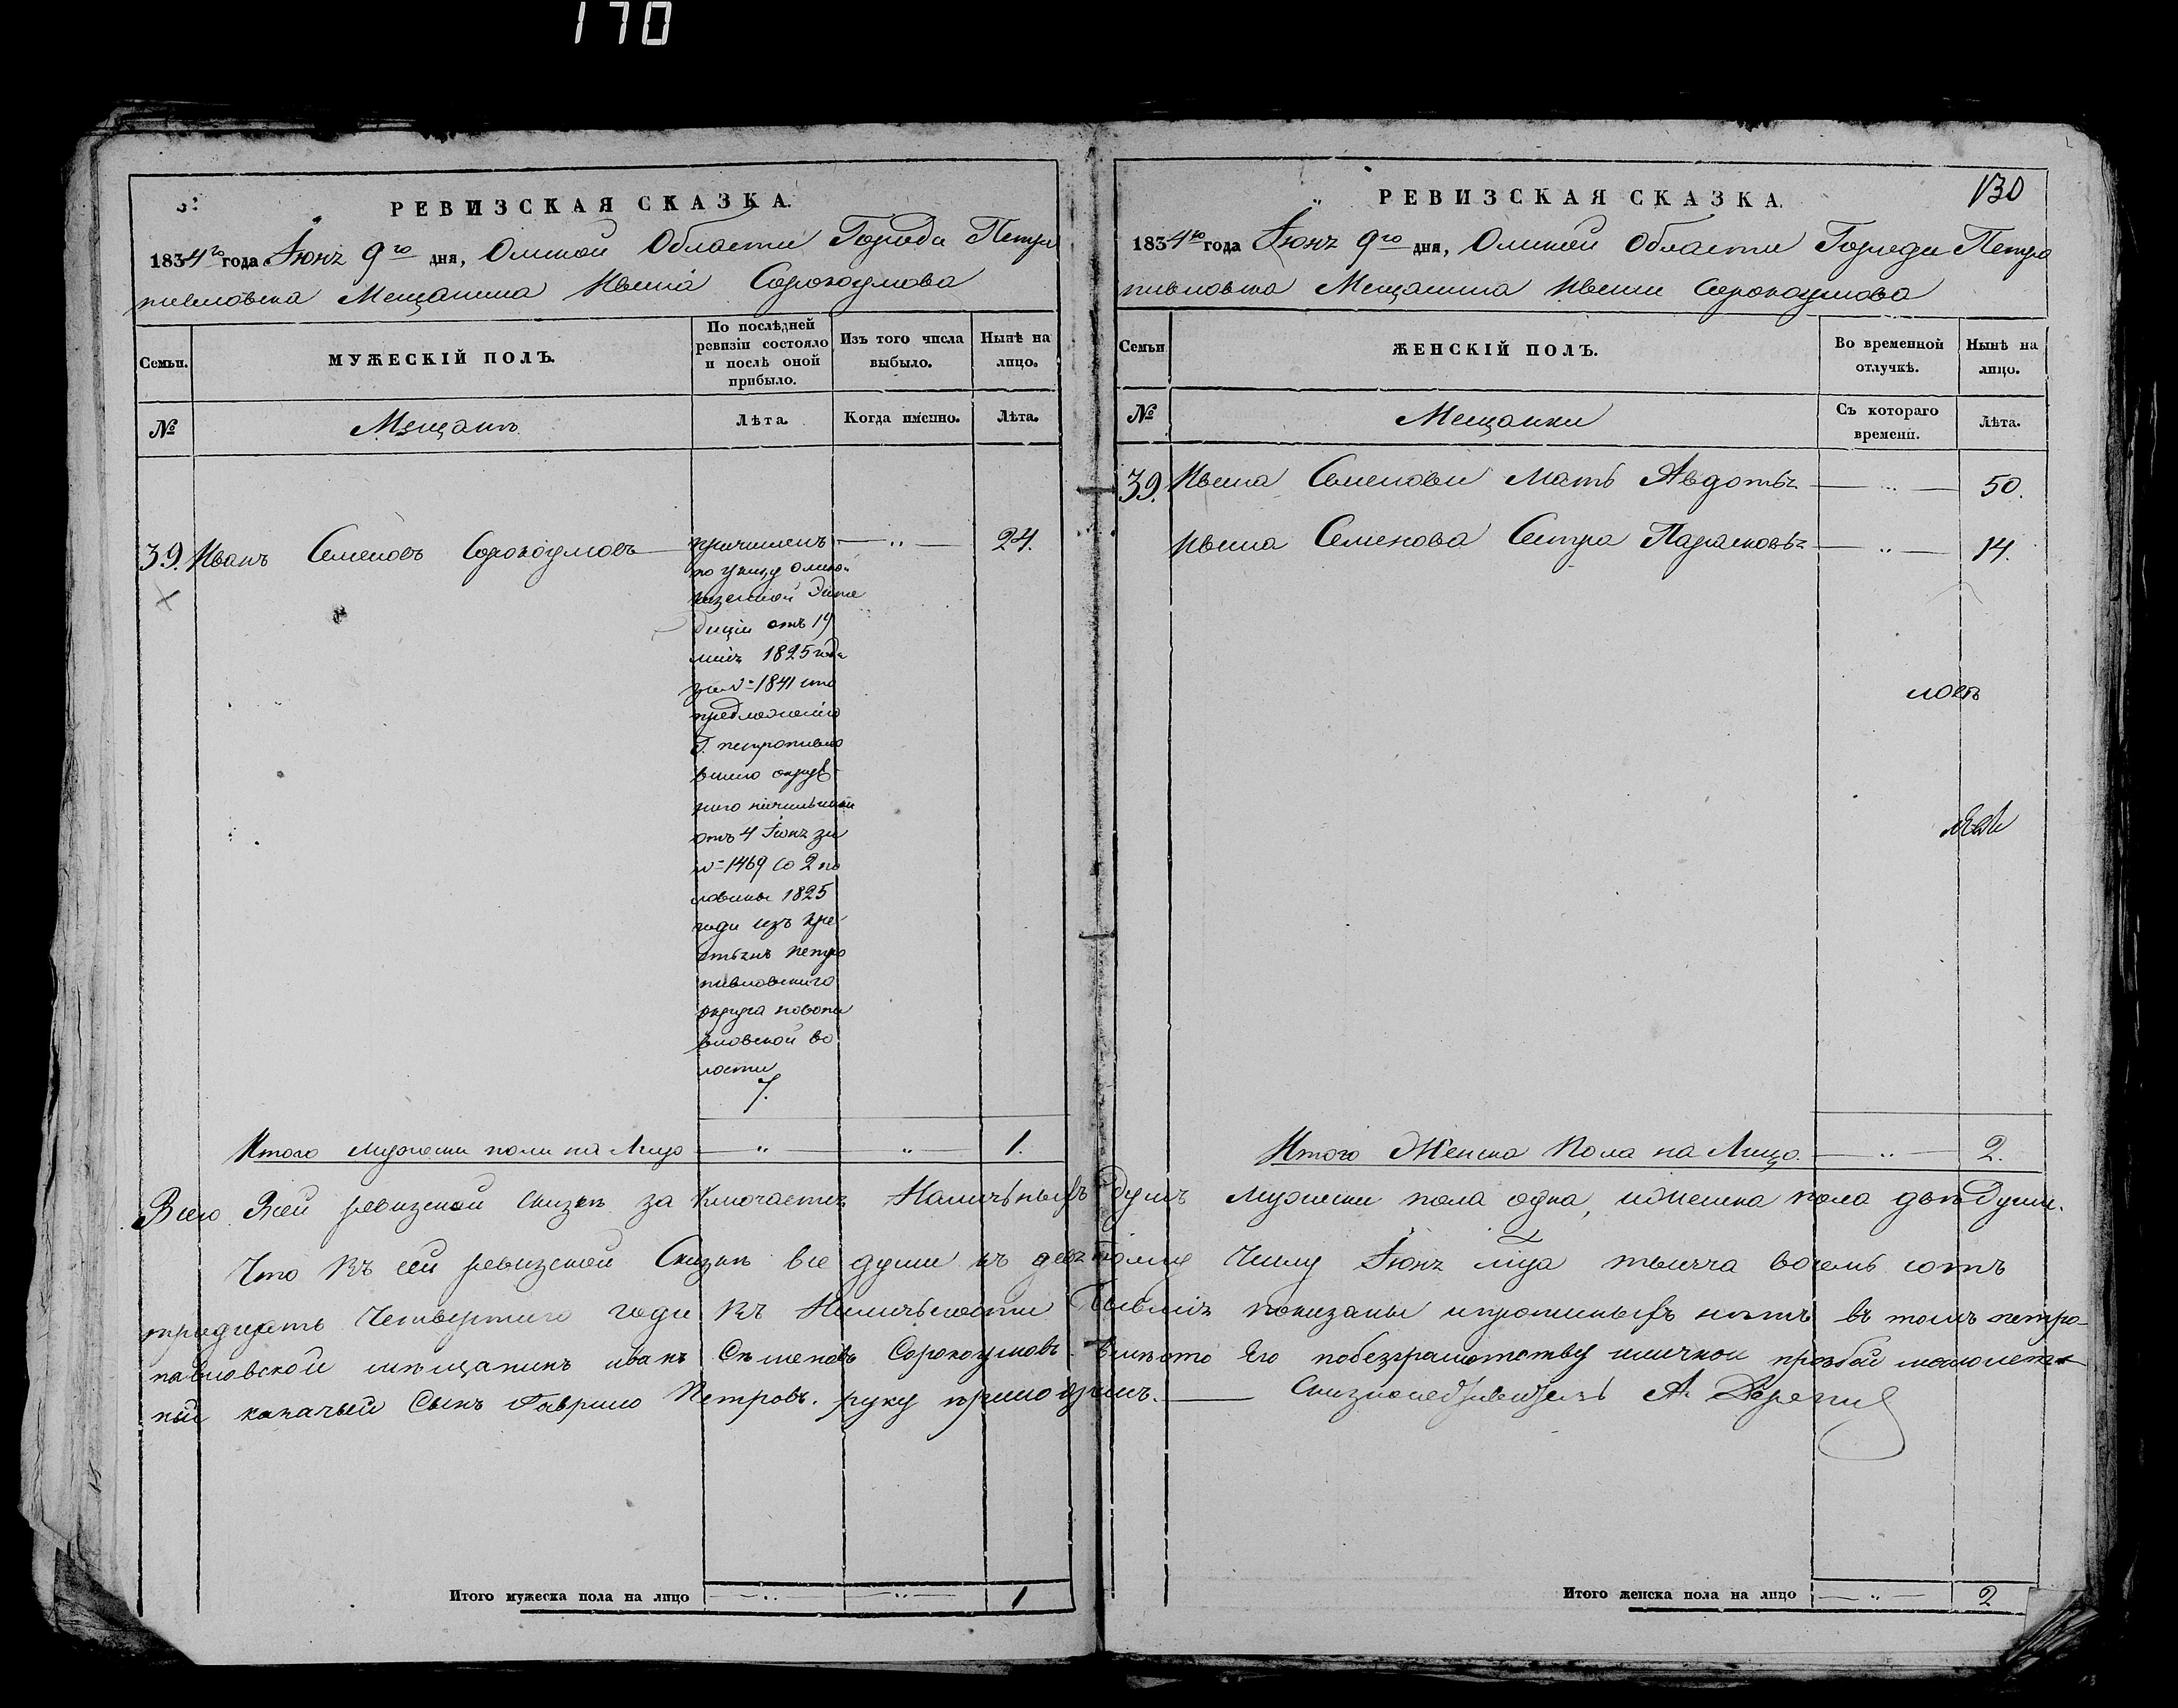 170
РЕВИЗСКАЯ СКАЗКА.
1834го года Iюня 9го дня, Омской Области Города Петро
павловска Мещанина Ивана Сорокоумова
Семьи.
МУЖЕСКІЙ ПОЛЪ.
По послѣдней
ревизіи состояло
и послѣ оной
прибыло.
Изъ того числа
выбыло.
Нынѣ на
лицо.
№
Мещанъ
Лѣта.
Когда именно.
Лѣта.
39. Иванъ Семеновъ Сорокоумовъ
причисленъ
по указу Омско
казенной Экспе
диціи отъ 19
1825 года
за №=1841 и по
предложенію
Г. петропавло
вскаго окруж
наго начальника
отъ 4 Iюня за
№=1469 со 2 по
ловины 1825
года изъ кре
стьянъ петро
павловскаго
округа новопа
вловской во
лости
7.
24.
Итого мужеска пола на Лицо
1.
Итого мужеска пола на лицо
1
130
РЕВИЗСКАЯ СКАЗКА.
1834го года Iюня 9го дня, Омской Области Города Петро
павловска Мещанина Ивана Сорокоумова
Семьи
ЖЕНСКІЙ ПОЛЪ.
Во временной
отлучкѣ.
Нынѣ на
лицо.
№
Мещанки
Съ котораго
времени.
Лѣта.
39. Ивана Семенова Мать Авдотья 50.
Ивана Семенова Сестра Парасковья 14.
Итого Женска Пола на Лицо. 2.
Всего Всей ревизской Сказкѣ заключается Наличныхъ душъ мужеска пола одна, и женска пола двѣ души.
Что Въ сей ревизской Сказкѣ все души къ девятому Числу Iюня мца тысяча восемь сотъ
тридцать Четвертаго года Въ Наличьности бывшія показаны и прописныхъ нѣтъ въ томъ петро-
павловской мѣщанинъ иванъ Семеновъ Сорокоумовъ вмѣсто Его побезграмотству иличной прозбой
казачьей Сынъ Гаврило Петровъ. руку приложилъ.
Итого женска пола на лицо
2